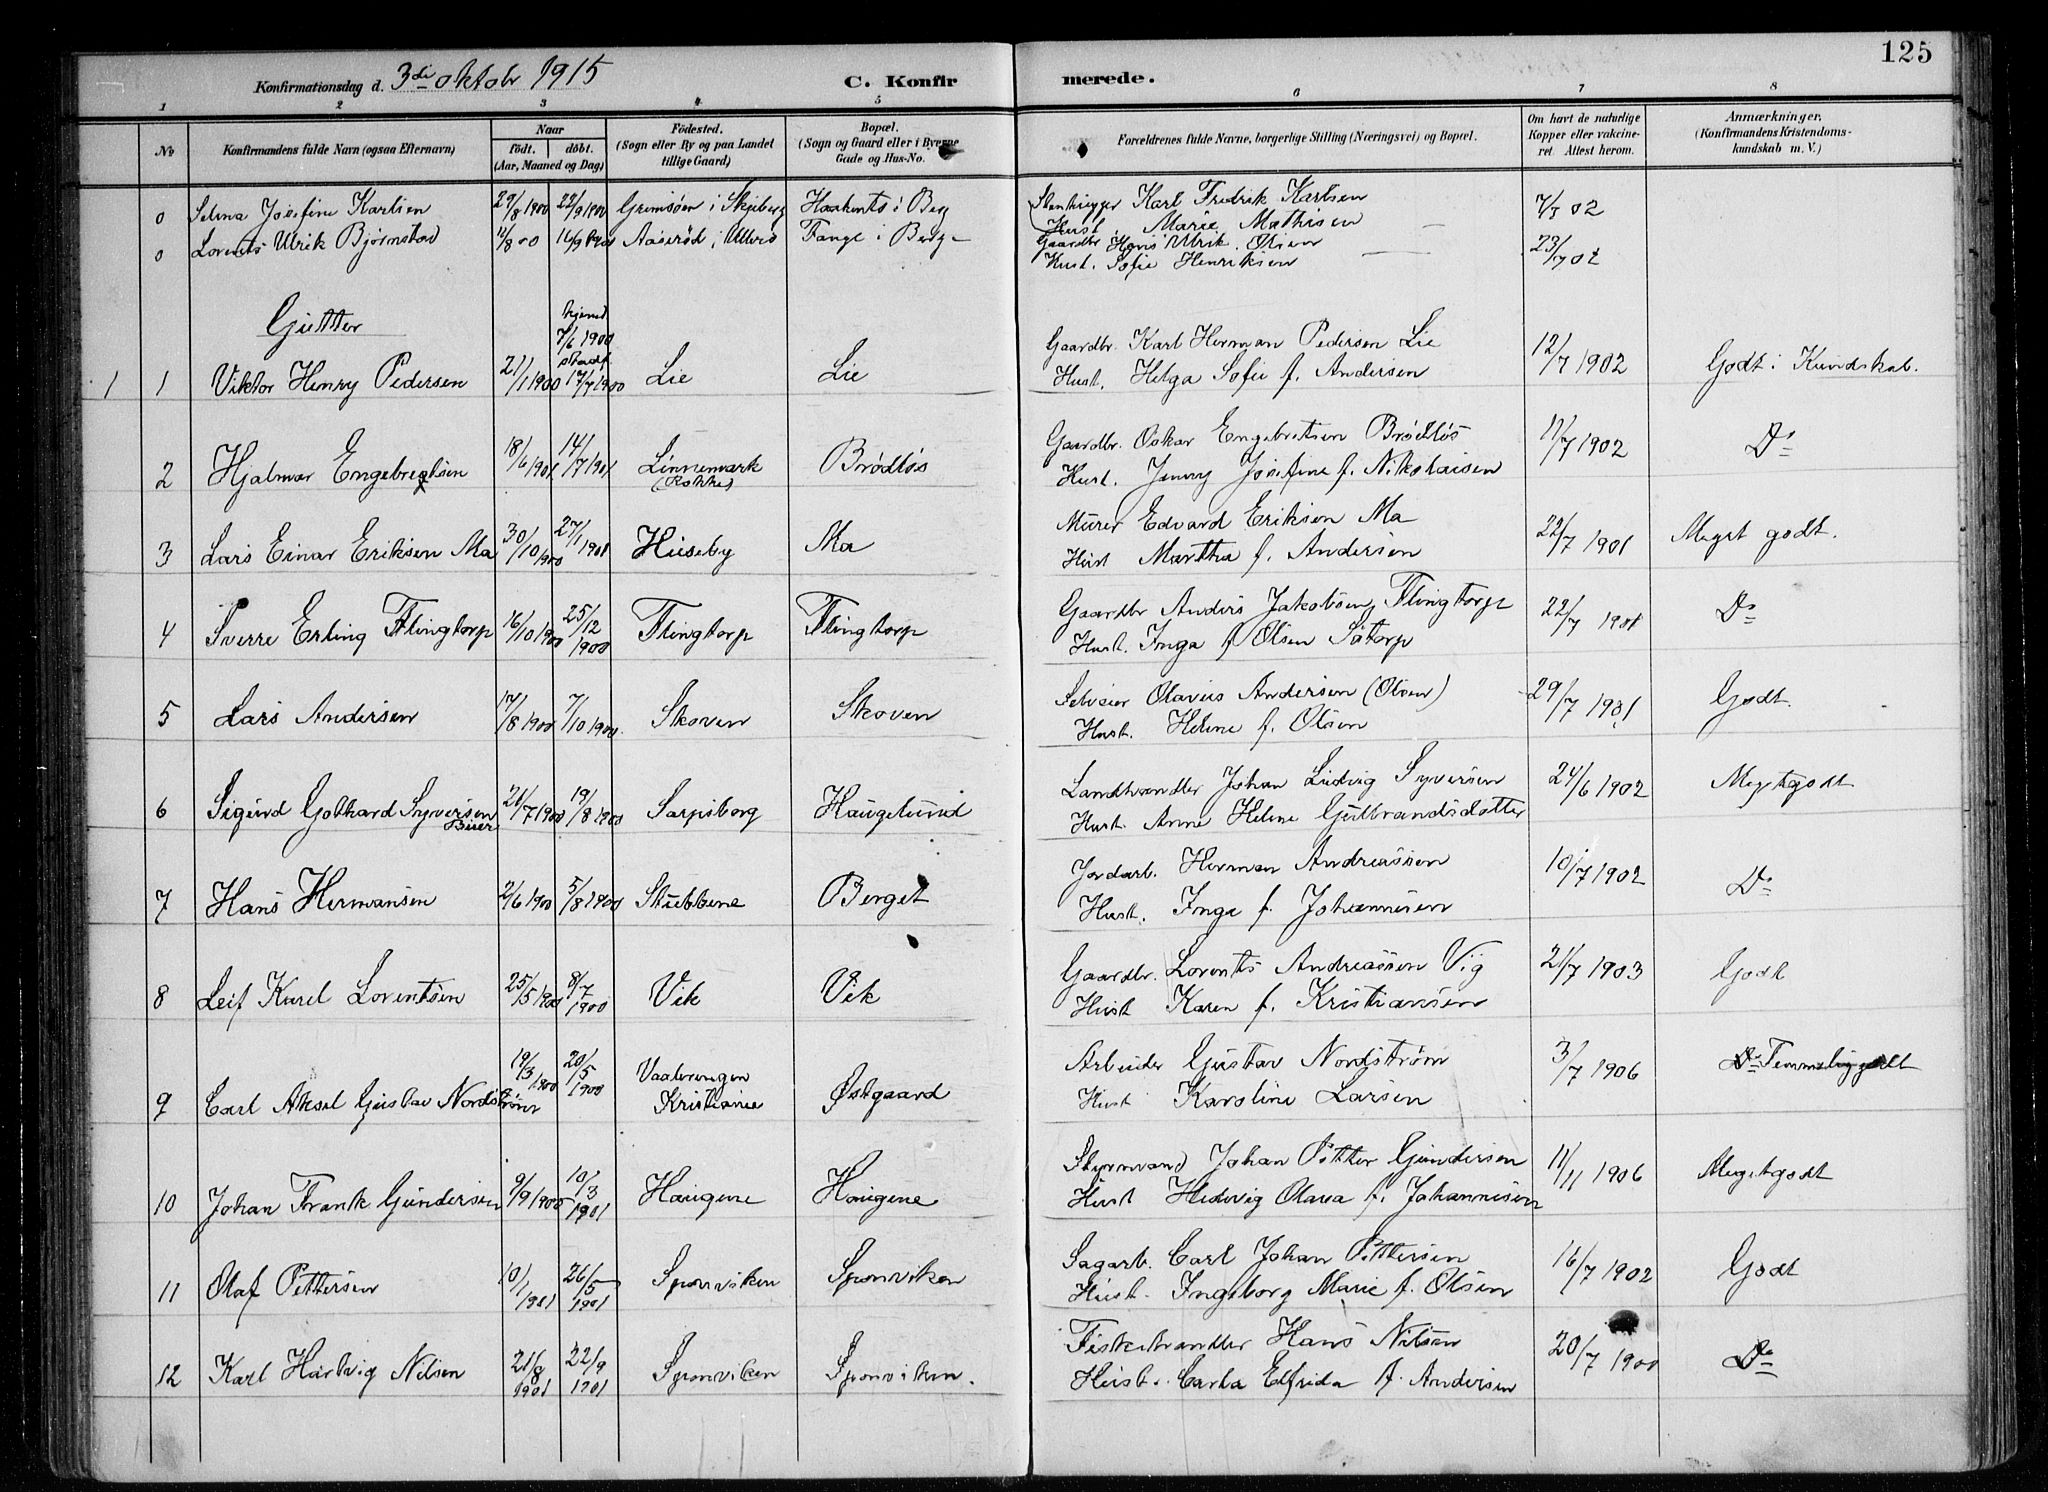 125
Konfirmationsdag d. 3di oktober 1915 C. Konfirmerede.
1 2 3 4 5 6 7 8
No Konfirmandens fulde Navn (ogsaa Efternavn) Naar født. døbt. (Aar, Maaned og Dag) Fødested. (Sogn eller By og paa Landet tillige Gaard) Bopæl. (Sogn og Gaard eller i Byerne Gade og Hus-No. Forældrenes fulde Navne, borgerlige Stilling (Næringsvei) og Bopæl. Om havt de naturlige Kopper eller vakcineret. Attest herom. Anmærkninger. (Konfirmandens Kristendomskundskab m. V.)
0 Selma Josefine Karlsen 29/8 1900 22/9 1900 Grimsøen i Skjeberg i Berg Stenhugger Karl Fredrik Karlsen 02
Hust. Marie Mathisen
0 Lorents Ulrik Bjørnstad 11/8 00 16/9 1900 i Ullerø Tange i Berg Gaardbr. Hans Ulrik Olsen 23/7 02
Hust. Sofie Henriksen
Gutter
hjemmed 7/6 1900 stadf.
1 1 Viktor Henry Pedersen 21/1 1900 17/7 1900 Lie Lie Gaardbr. Karl Herman Pedersen Lie 12/7 1902 Godt i Kundskab.
Hust. Helga Sofie f. Andersen
2 Hjalmar Engebretsen 18/6 1901 14/7 1901 Linnemark (Rokke) Brødløs Gaardbr. Oskar Engebretsen Brødløs 17/7 1902 Do
Hust. Jenny Josefine f. Nikolaisen
3 Lars Einar Eriksen Ma 30/10 1900 27/1 1901 Huseby Ma Murer Edvard Eriksen Ma 22/7 1901 Meget godt.
Hust Martha f. Andersen
4 Sverre Erling Flingtorp 16/10 1900 25/12 1900 Flingtorp Flingtorp Gaardbr Anders Jakobsen Flingtorp 22/7 1901 Do
Hust. Inga f Olsen Satorp
5 Lars Andersen 17/8 1900 7/10 1900 Skoven Skoven Selveier Olavus Andersen (Olsen) 29/7 1901 Godt.
Hust. Helene f. Olsen
6 Sigurd Gothard Syversen Buer 21/7 1900 19/8 1900 Sarpsborg Haugelund Landhandler Johan Ludvig Syversen 24/6 1902 Megetgodt
Hust. Anne Helene Gulbrandsdatter
7 Hans Hermansen 2/6 1900 5/8 1900 Stubbene Berget Jordarb. Herman Andreassen 10/7 1902 Do
Hust. Inga f. Johannesen
8 Leif Karel Lorentsen 25/5 1900 8/7 1900 Vik Vik Gaardbr. Lorents Andreassen Vig 21/7 1903 Godt
Hust Karen f. Kristiansen
9 Carl Aksel Gustav Nordstrøm 19/3 1900 20/5 1900 Vaalerengen Kristiania Østgaard Arbeider Gustav Nordstrøm 3/7 1906 Do Temmelig godt
Hust Karoline Larsen
10 Johan Frank Gundersen 9/9 1900 10/3 1901 Haugene Haugene Styrmand Johan Petter Gundersen 11/11 1906 Megetgodt
Hust Hedevig Olava f. Johannesen
11 Olaf Pettersen 10/1 1901 26/5 1901 Sponviken Sponviken Sagarb. Carl Johan Pettersen 16/7 1902 Godt
Hust. Ingeborg Marie f. Olsen
12 Karl Hartvig Nilsen 21/8 1901 22/9 1901 Sponviken Sponviken. Fiskehandler Hans Nilsen 20/7 Do
Hust. Carla Elfrida f. Andersen